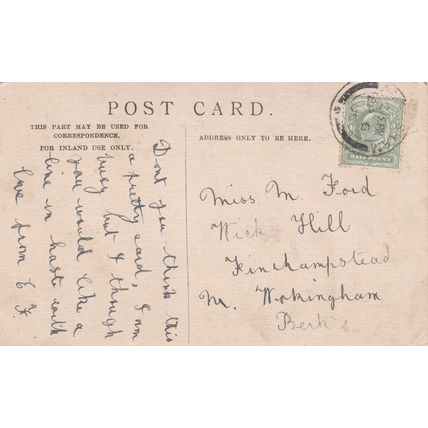 POST CARD.
THIS PART MAY BE USED FOR
CORRESPONDENCE,
FOR INLAND USE ONLY.
ADDRESS ONLY TO BE HERE.
HALF PENNY
Dont you think this
a pretty card, I am
busy but I though
you would like a
line in haste with
love from E F.
Miss M. Ford
Wick Hill
Finchampstead
Nr. Wokingham
Berk's